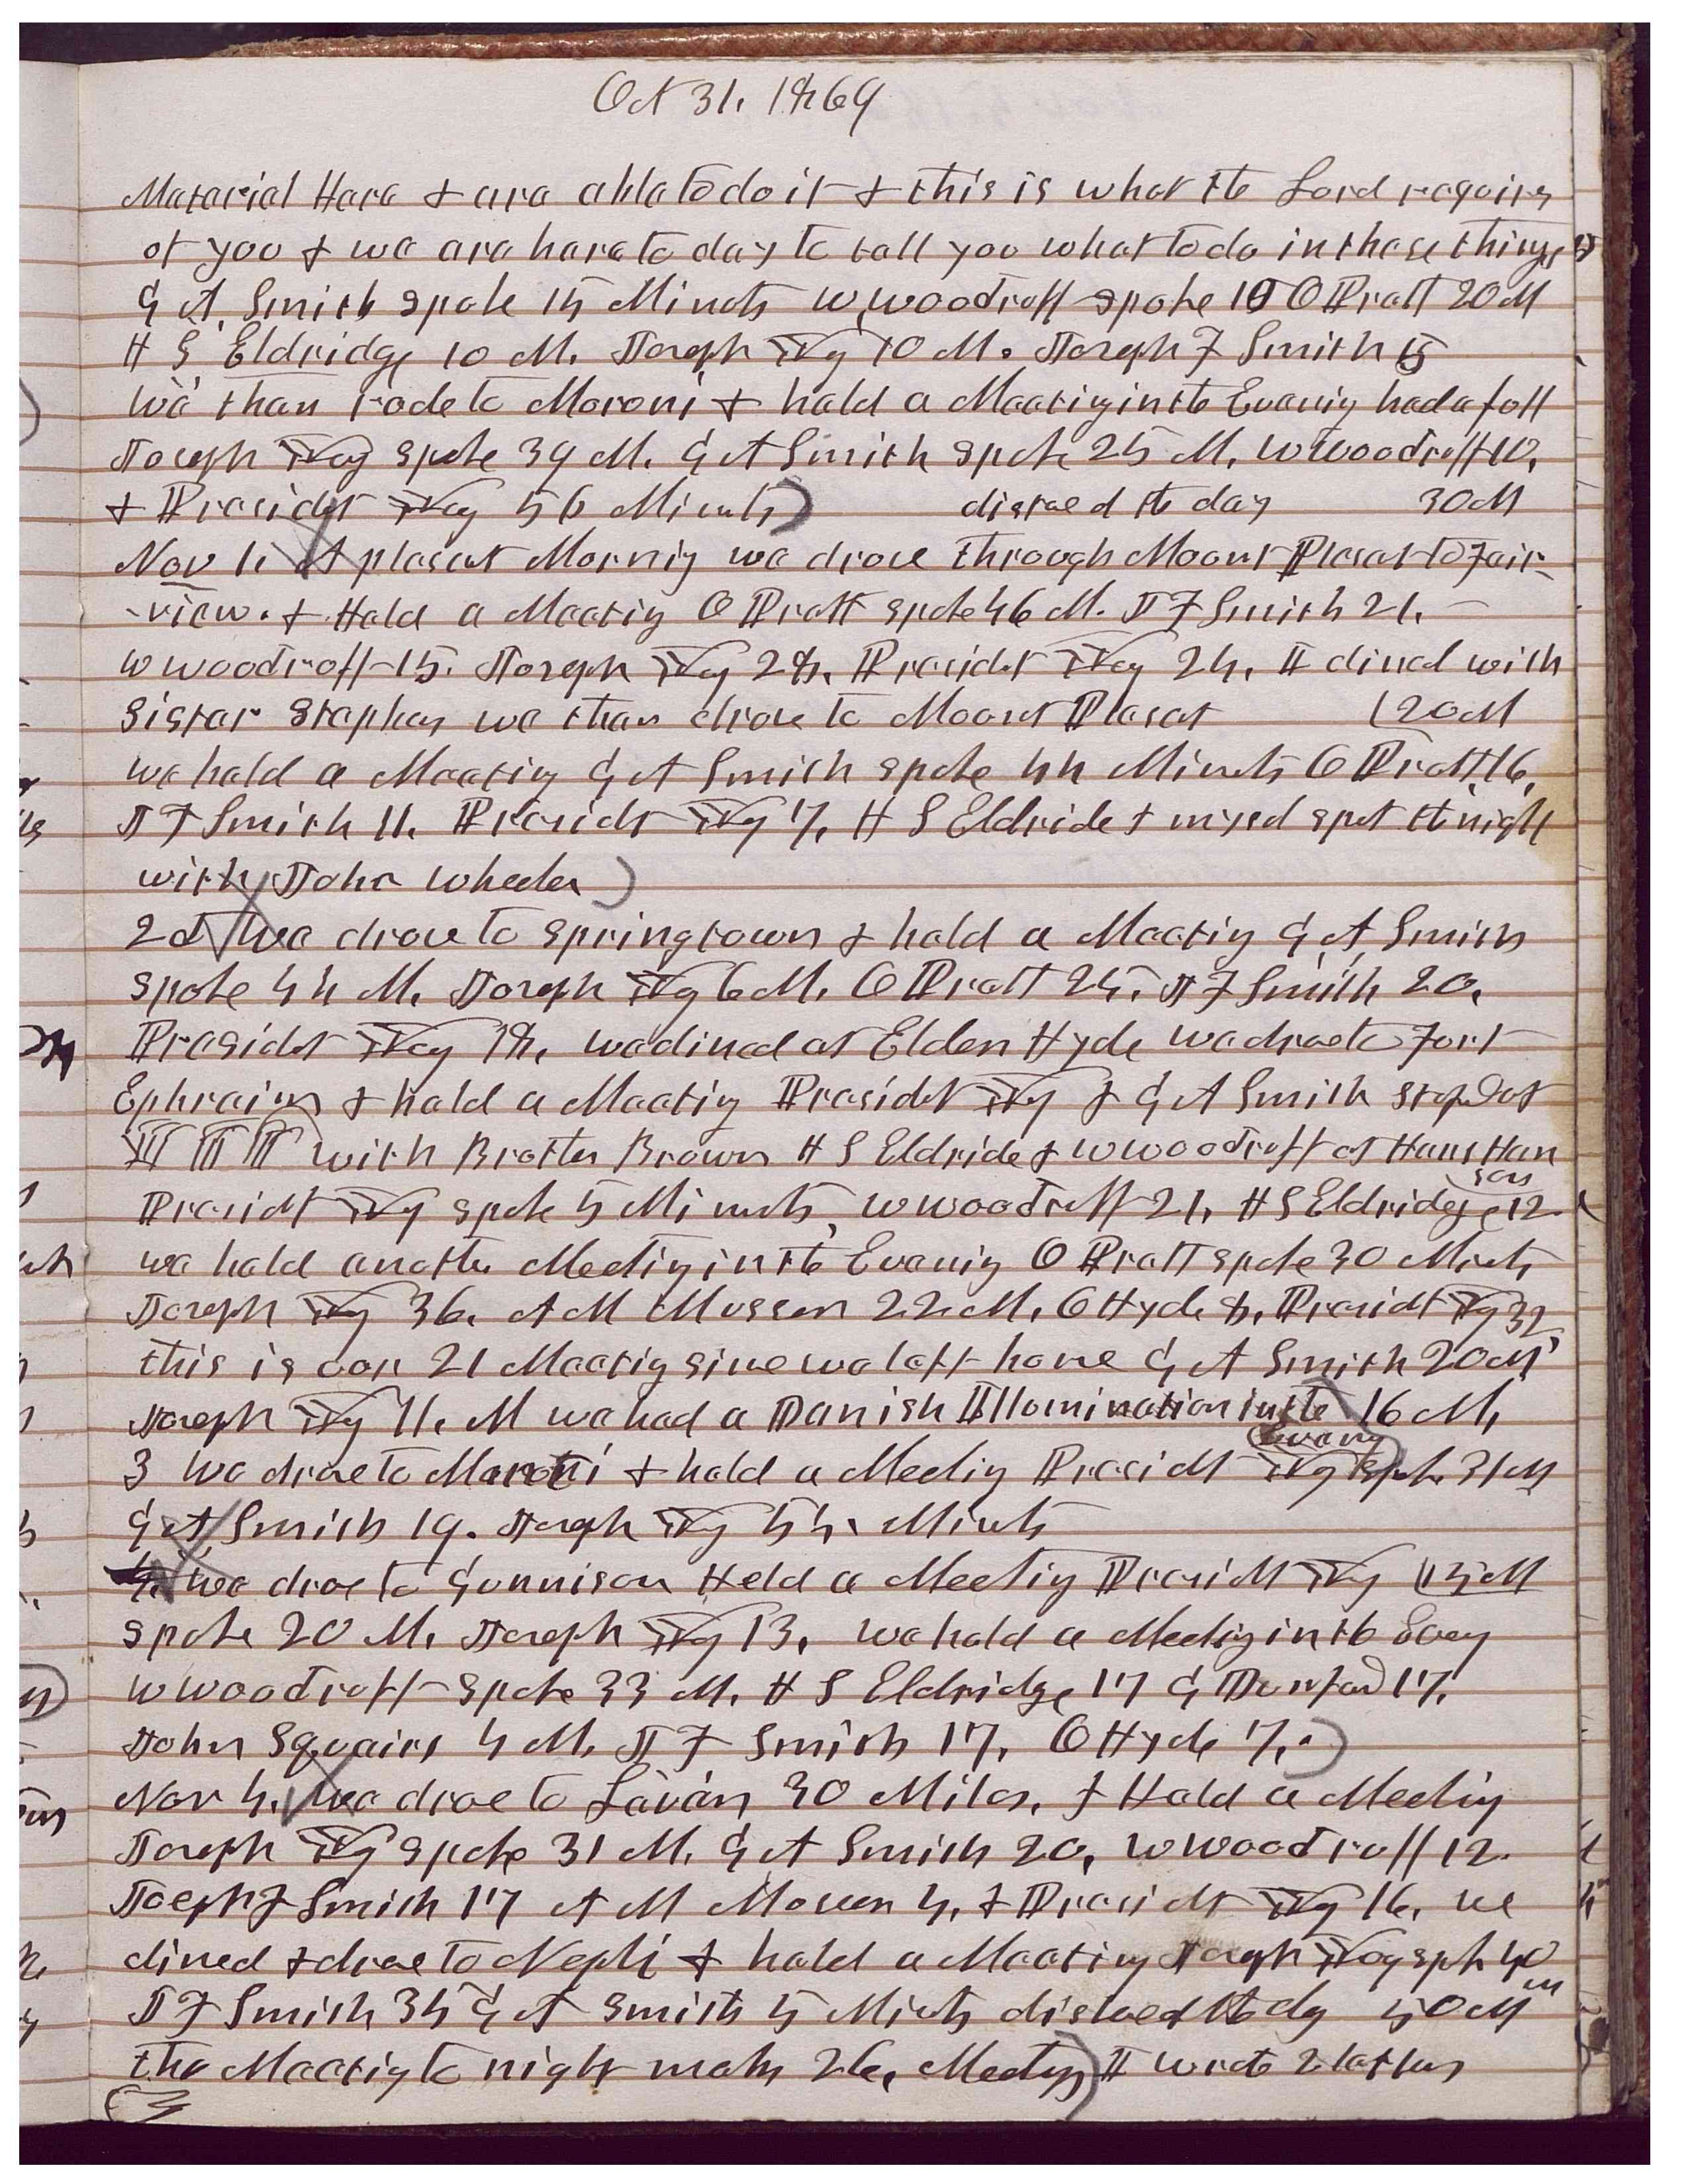 Oct 31, 1869
Material Here & are able to do it & this is what the Lord requires
of you & we are here to day to tell you what to do in these things
G A, Smith spoke 15 Minuts W, Woodruff spoke 10 O Pratt 20 M
H S Eldridge 10 M. Joseph Yg 10 M. Joseph F Smith 15
We then rode to Moroni & held a Meeting in the Evening had a full
Joseph Yg spoke 39 M. G A Smith spoke 25 M, W Woodruff 10,
& Presidet Yg 56 Minuts) distaed the day 30 M
Nov 1. A plesant Mornig we drove through Mount Plesat to Fair-
-view. & Held a Meetig O Pratt spoke 46 M. J F Smith 21.
W Woodruff 15. Joseph Yg 28, Presidet Yg 24, I dined with
Sister Stephens we then drove to Mount Plesat (20 M
we held a Meetig G A Smith spoke 44 Minuts O Pratt 16,
J F Smith 11. Presidt Yg 7, H S Eldride & myself spet the night
with John Wheeler)
2d We drove to Springtown & held a Meetig G A, Smith
spoke 44 M, Joseph Yg 6 M, O Pratt 25, J F Smith 20,
Presidet Yg 18, we dined at Elder Hyde we drove to Fort
Ephraim & held a Meetig Presidet Yg & G A Smith stoped at
with Brother Brown H S Eldride & W Woodruff at Hans Han
sons
Presidt Yg spoke 5 Minuts, W Woodruff 21, H S Eldridge 12
we held another Meetig in the Evenig O Pratt spoke 30 Minuts
Joseph Yg 36, A M Musser 22 M, O Hyde 8, Presidt Yg 32,
this is our 21 Meetig since we left home G A Smith 20 M
Joseph Yg 11, M we had a Danish Illumination in the 16 M,
Eveng
3 We drove to Manti & held a Meetig Presidt Yg spoke 31 M
G A, Smith 19. Joseph Yg 54, Minuts
4, We drove to Gunnison Held a Meetig Presidt Yg (15 M
spoke 20 M, Joseph Yg 13, we held a Meetig in the Eveg
W Woodruff spoke 33 M, H S Eldridge 17 G Dunford 17,
John Squaires 4 M, J F Smith 17, O Hyde 7,)
Nov 4, We drove to Levan 30 Miles, & Held a Meetig
Joseph Yg spoke 31 M, G A Smith 20, W Woodruff 12.
Joseph F Smith 17 A M Musser 4, & Presidt Yg 16, we
dined & drove to Nephi & held a Meetig Joseph Yog spok 40
m
J F Smith 35 G A Smith 5 Minuts distaed the dy 50 M
the Meetig to night maks 26, Meetigs) I wrote 2 letters